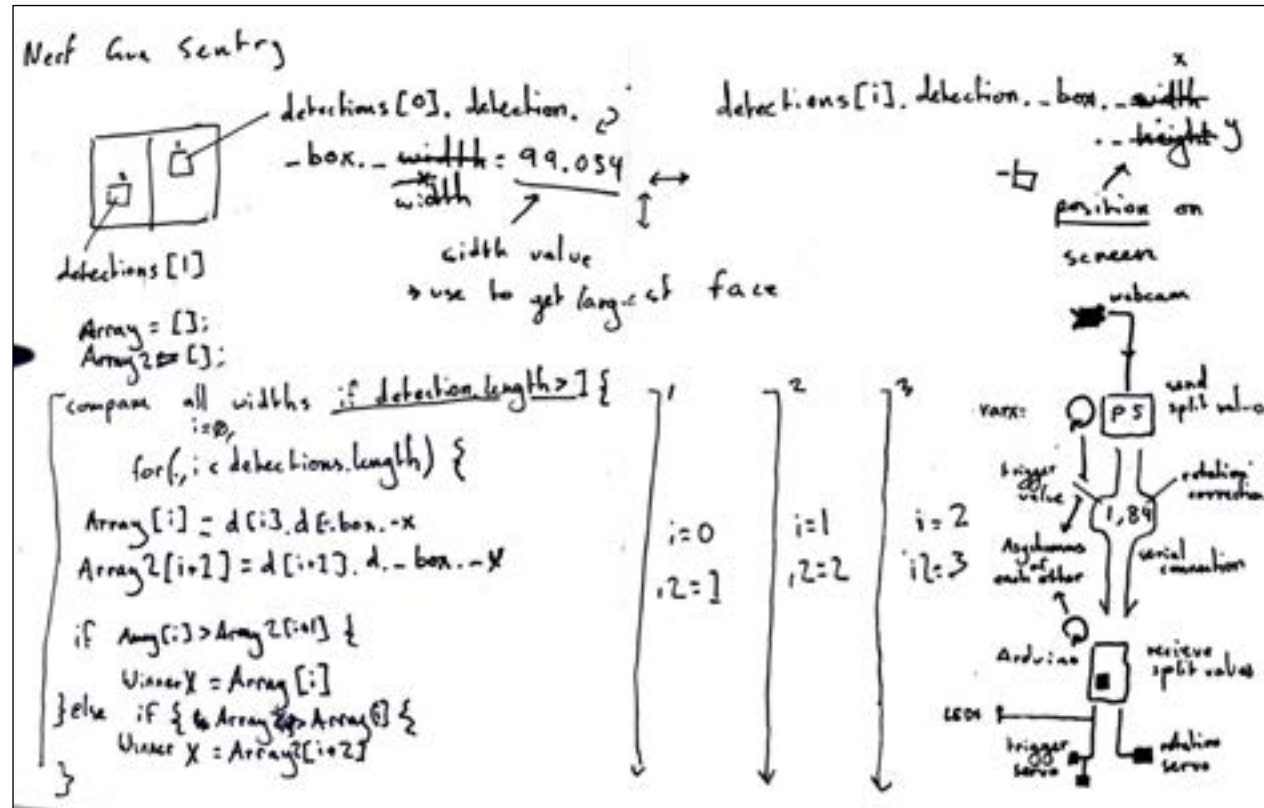 Nerf Gun Sentry
detections[0]. detection.
_box._ width = 99.054
width
width value
→ use to get largest face
detections[1]
detections[i]. detection. _box. _ width x
_ height y
position on
screen
Array = [];
Array2 = [];
compare all widths if detection.length > 1 {
i=0,
for(, i < detections.length) {
Array[i] = d[i].d._box._x
Array2[i+1] = d[i+1]. d._box._x
if Array[i] > Array2[i+1] {
Winner X = Array[i]
} else if { Array2 > Array[i] {
Winner X = Array2[i+1]
}
1
i=0
i2=1
2
i=1
i2=2
3
i=2
i2=3
webcam
varx:
P5
send
split value
trigger
value
1,84
rotation
correction
Asynchronous of
each other
serial
connection
Arduino
recieve
split values
LEDs
trigger
servo
rotation
servo